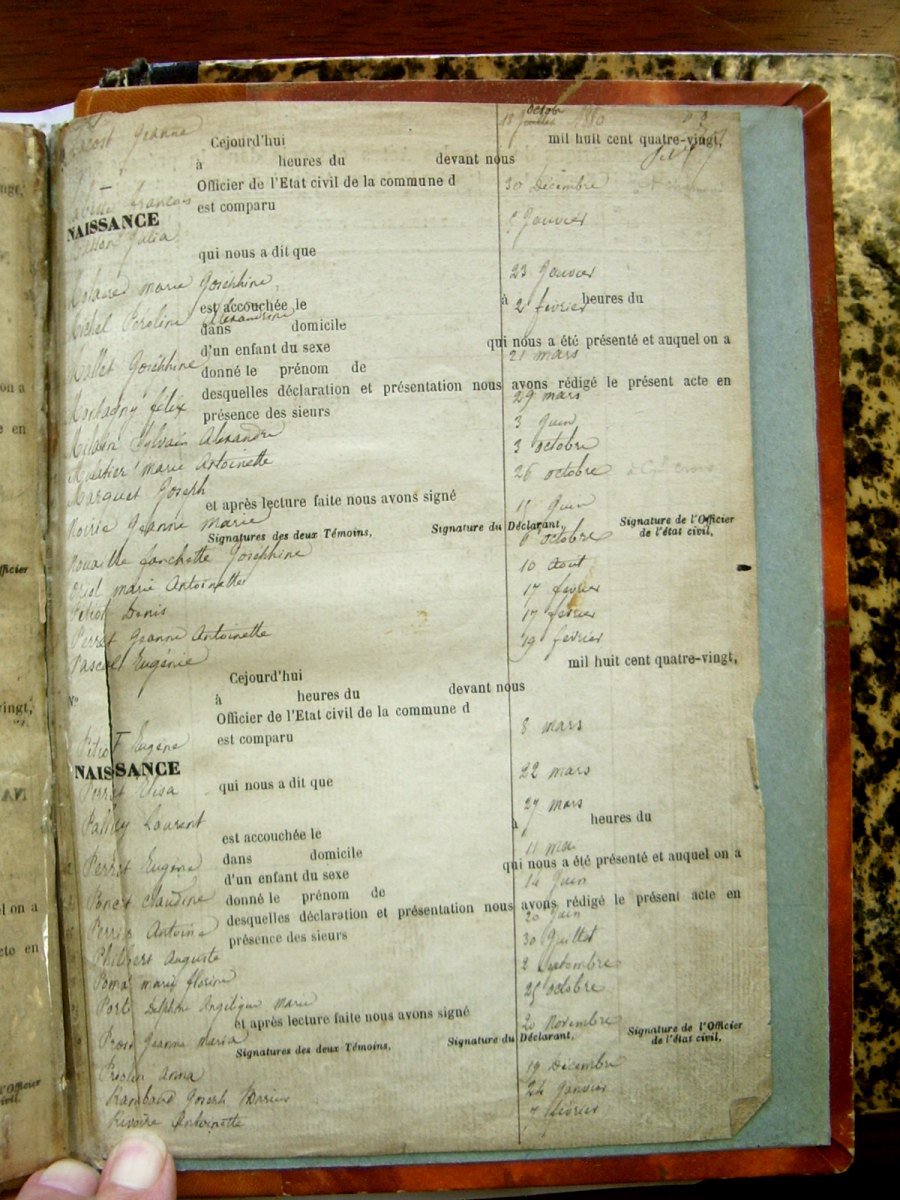 Lacost Jeanne 18 octob 1880
Cejourd'hui mil huit cent quatre-vingt,
à heures du devant nous
Officier de l'Etat civil de la commune d 30 Décembre
François
est comparu
NAISSANCE 9 Janvier
Julia
qui nous a dit que
marie Joséphine 23 Janvier
est accouchée le à heures du
Michel Peroline Alexandrine 2 février
dans domicile
d'un enfant du sexe qui nous a été présenté et auquel on a
Mollet Joséphine 21 mars
donné le prénom de
desquelles déclaration et présentation nous avons rédigé le présent acte en
Montagny félix 29 mars
présence des sieurs
Sylvain Alexandre 3 Juin
marie Antoinette 3 octobre
Marquet Joseph 26 octobre
et après lecture faite nous avons signé
Noirie Jeanne marie 15 Juin
Signatures des deux Témoins, Signature du Déclarant, Signature de l'Officier
de l'état civil,
Nouaille fanchette Joséphine 6 octobre
Oriol marie Antoinette 10 Aout
Petiot Denis 17 février
Perret Jeanne Antoinette 17 février
Pascal Eugénie 19 février
Cejourd'hui mil huit cent quatre-vingt,
N°
à heures du devant nous
Officier de l'Etat civil de la commune d
Petiot Eugène 8 mars
est comparu
NAISSANCE
Perret Elisa 22 mars
qui nous a dit que
Laurent 27 mars
est accouchée le à heures du
Perret Eugène 11 mai
dans domicile
d'un enfant du sexe qui nous a été présenté et auquel on a
Poncet Claudine 14 Juin
donné le prénom de
desquelles déclaration et présentation nous avons rédigé le présent acte en
Perrier Antoine 20 Juin
présence des sieurs
Philibert Auguste 30 Juillet
Poma marie florine 2 Septembre
Porte Delphine Angélique Marie 25 octobre
et après lecture faite nous avons signé
Prost Jeanne Maria 20 Novembre
Signatures des deux Témoins, Signature du Déclarant, Signature de l'Officier
de l'état civil,
Anna 19 Décembre
Rambaud Joseph Marius 24 Janvier
Rivoire Antoinette 7 février